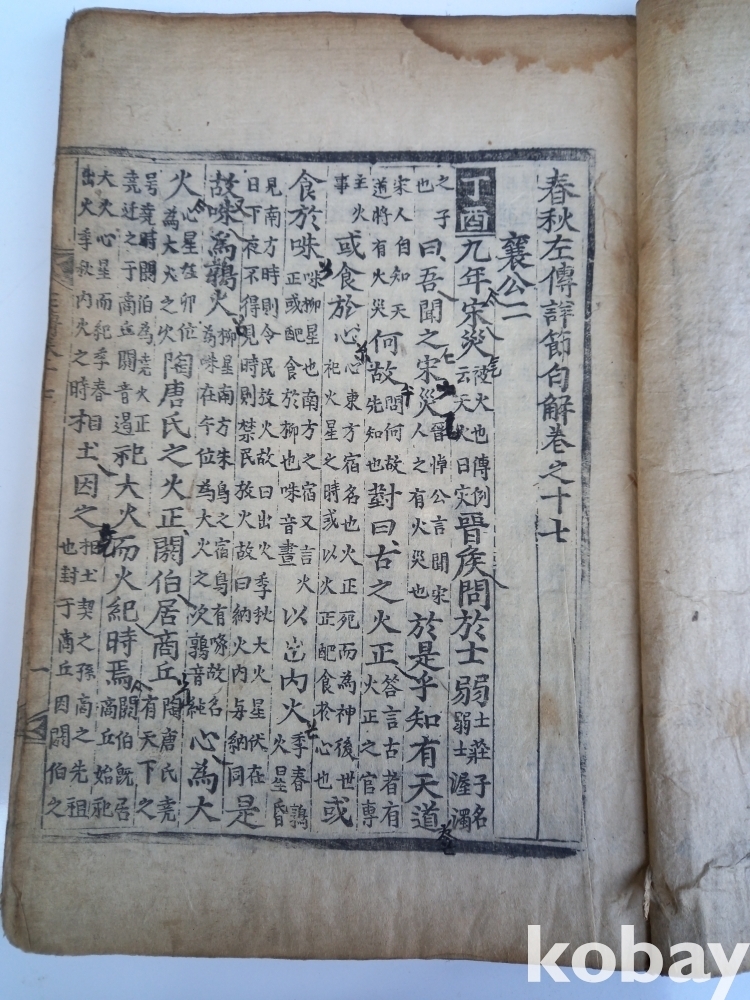 春秋左傳詳節句解卷之十七
襄公二
丁酉九年宋災被火也傳例云天火曰災晉侯問於士弱士莊子名弱士渥濁
之子也曰吾聞之宋災晉悼公言聞宋人之有火災也於是乎知有天道
宋人自知天道將有火災何故問何故先知也對曰古之火正答言古者有火正之官專
主火事或食於心心東方宿名也火正死而為神後世祀火星之時或以火正配食於心也或
食於咮咮柳星也南方之宿又言火正或配食於柳也咮音晝以出内火季春鶉火星昏
見南方時則令民放火故曰出火季秋大火星伏在日下夜不得見時則禁民放火故曰納火内与納同是
故咮為鶉火柳星南方朱鳥之宿鳥有喙故名為咮在午位為大火之次鶉音純心為大
火心星在卯位為大火之次陶唐氏之火正閼伯居商丘陶唐氏堯有天下之
号堯時閼伯為堯火正堯迁之于商丘閼音遏祀大火而火紀時焉閼伯旣居商丘始祀
大火心星而紀季春出火季秋内火之時相土因之相土契之孫商之先祖也封于商丘因閼伯之
一
kobay